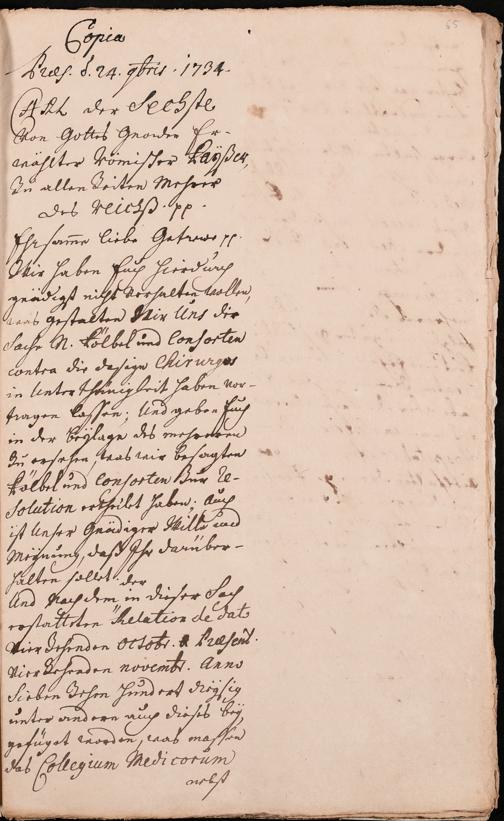 65
Copia
Præs. d. 24. 9bris. 1734.
Carl der Sechste
Von Gottes Gnaden Er-
wählter Römischer Kayßer,
Zu allen Zeiten Mehrer
des Reichß. pp.
Ehrsamme liebe Getrewe pp.
Wir haben Euch hierdurch
gnädigst nicht verhalten wollen,
was gestalten Wir Uns die
Sache N. Kölbel und Consorten
contra die dasige Chirurgos
in Unterthänigkeit haben vor-
tragen lassen; Und geben Euch
in der Beylage des mehreren
zu ersehen, was wir besagten
Kölbel und Consorten zur Re-
solution ertheilt haben; Auch
ist Unser Gnädiger Wille und
Meynung, daß Ihr darüber-
halten sollet.
Und Nachdem in dieser Sach der
erstatteten Relation de dato
vierzehenden Octobr. & Præsent.
vierzehenden novembr. Anno
Siebenzehen Hundert dreysig
unter andern auch dieses bey
gefüget worden, was massen
das Collegium Medicorum
nebst